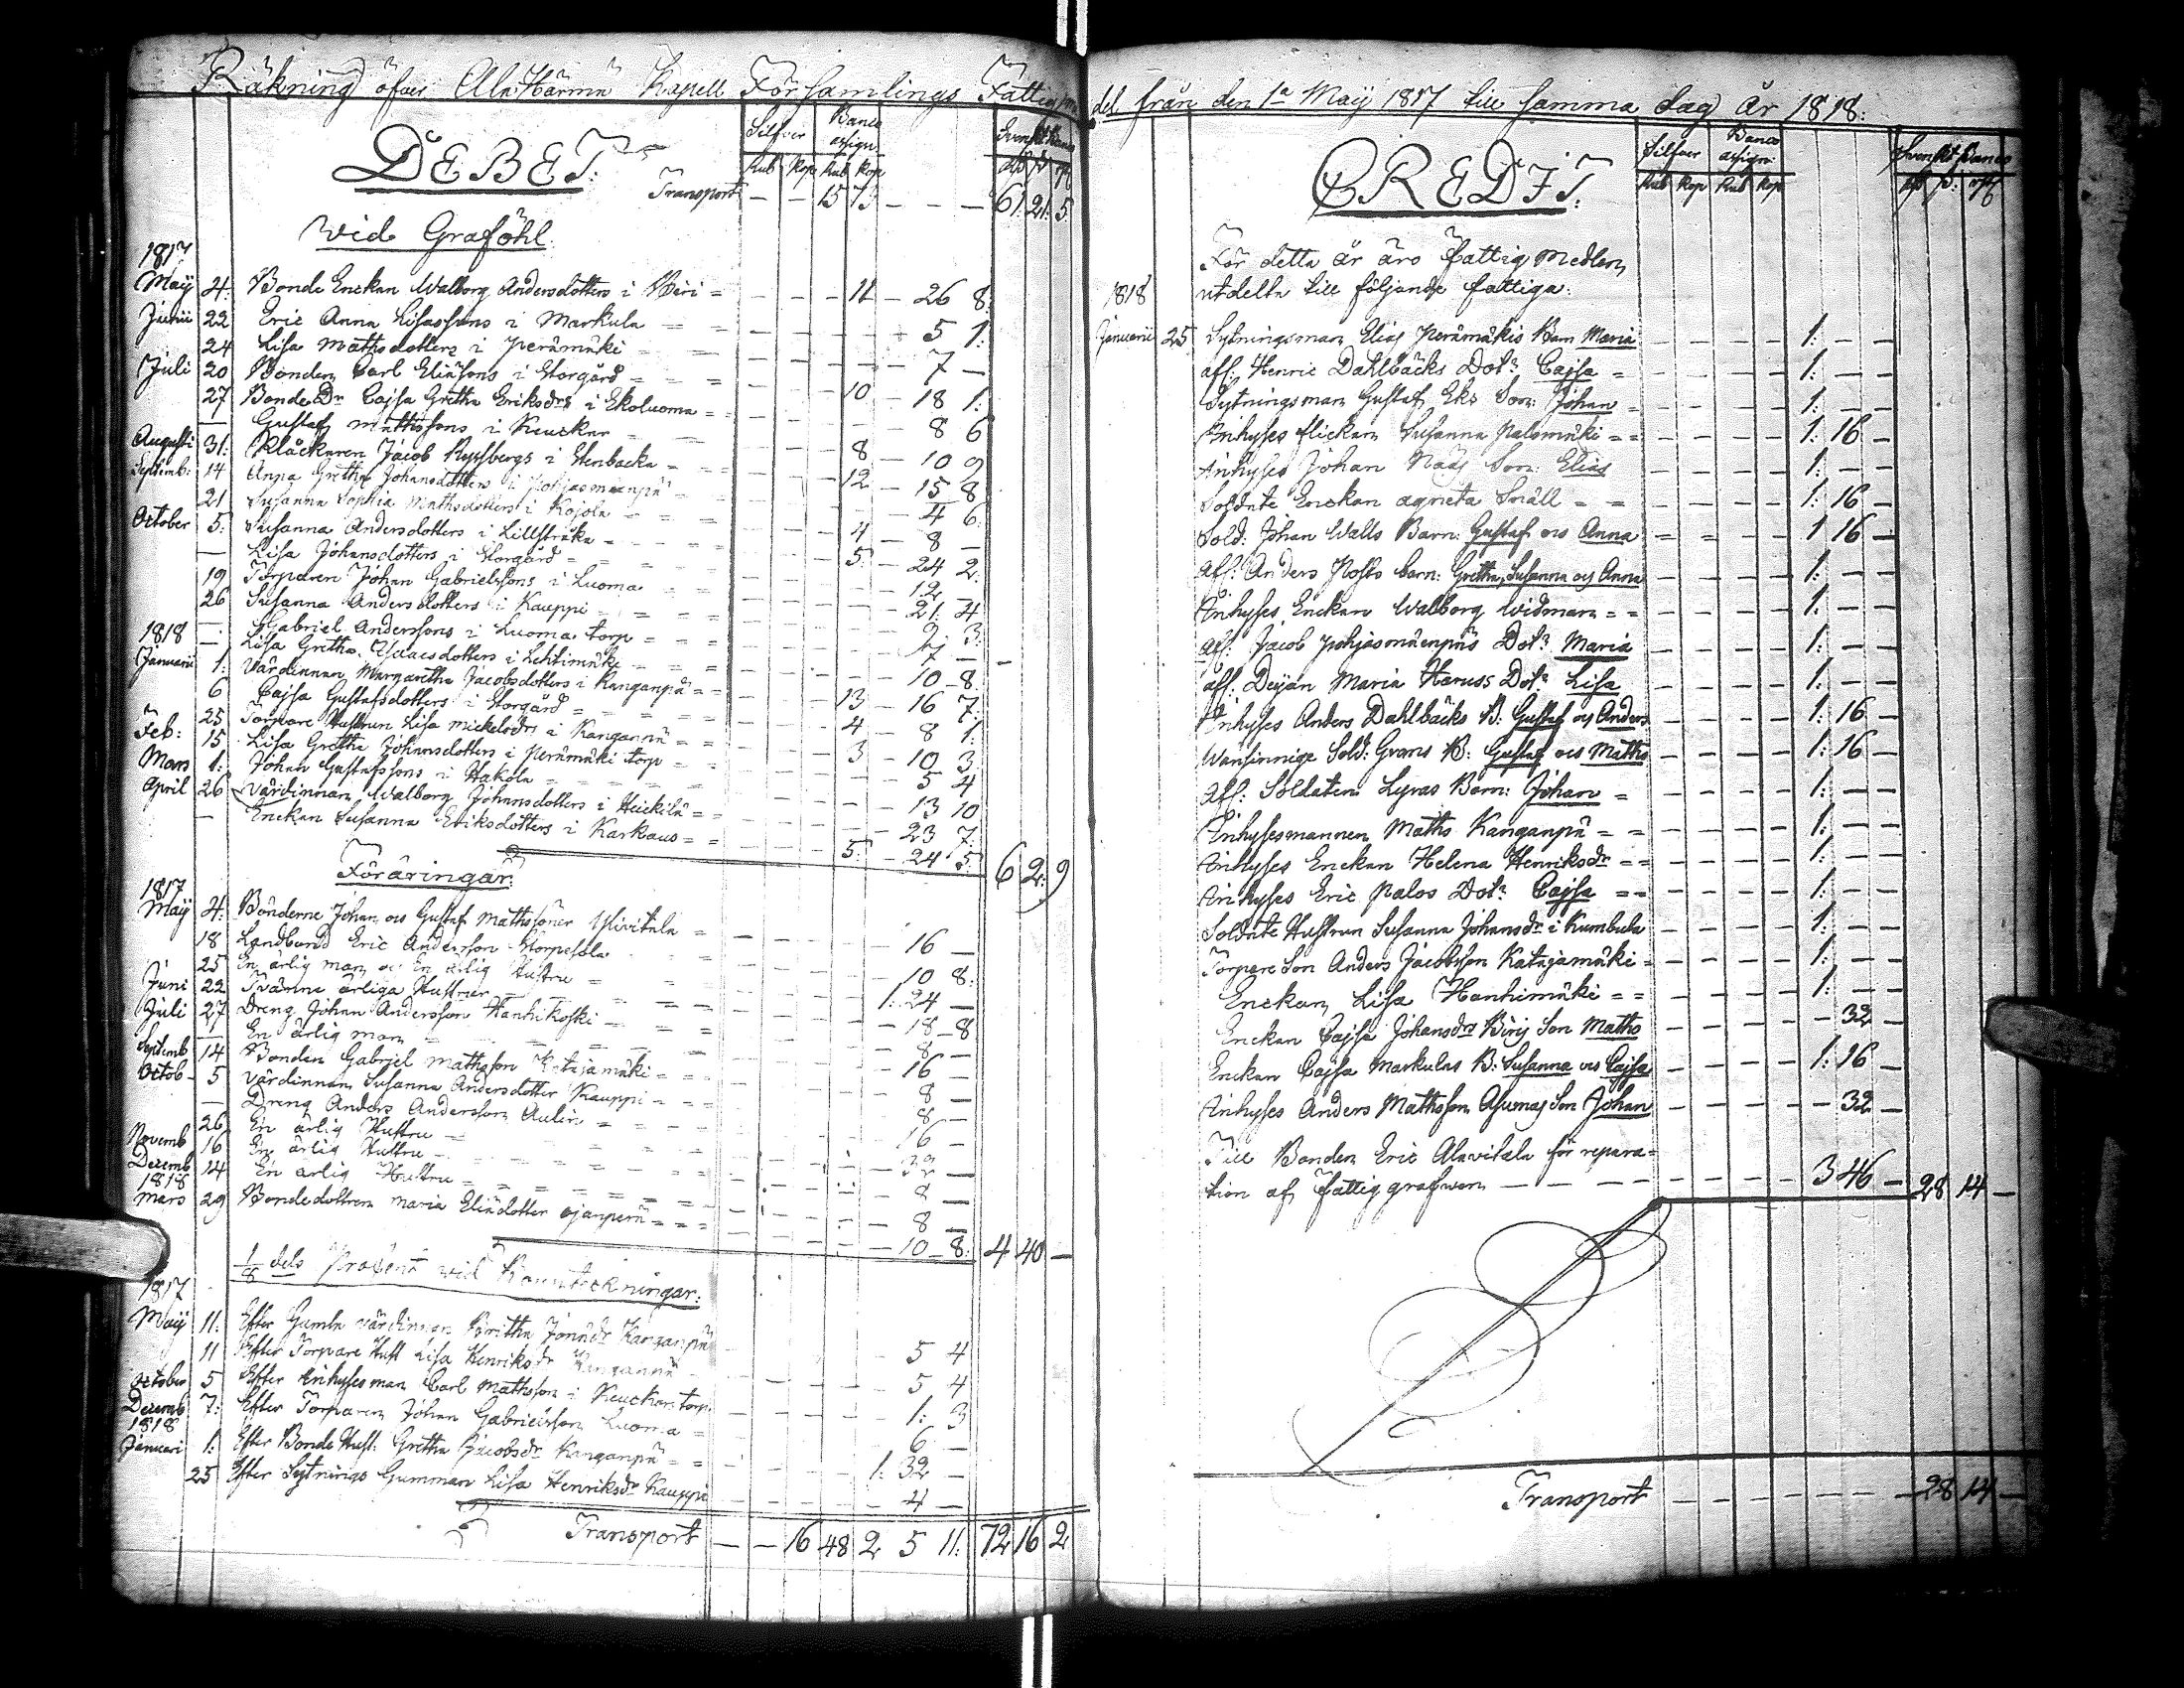 Räkning öfver Ala Härmä Kapell Församlings Fattig me
DEBET:
Silfver Banco assign. Svenskt Banco
Rub Kop Rub Kop
Transport — — 15 73 — — — 61 21 5
Vid Graföhl.
1817
Maÿ 4. Bonde Enckan Walborg Andersdotters i = — — — 11 — 26 8
Junii 22 Eric Anna Lisassons i Markula — 5 1.
24 Lisa Mathsdotters i Perämäki — 7 —
Juli 20 Bonden Carl Eliæsons i Storgård — 10 — 18 1:
27 Bonde Dr Cajsa Gretha Eriksdrs i Ekoluoma — 8 6
— Gustaf Mathssons i Keuckar — 8 — 10 9
Augusti 31: Klåckaren Jacob Ryssbergs i Stenbacka — 12 — 15 8
Septemb: 14 Anna Gretha Johansdotters i Pohjasmäenpää — 4 6
21 Susanna Sophia Mathsdotters i Kojola — 4 — 8 —
October 5: Susanna Andersdotters i Lillstråka — 5: — 24 2
— Lisa Johansdotters i Storgård — 12 —
19 Torparen Johan Gabrielssons i Luoma — 21. 4
26 Susanna Andersdotters i Kauppi — 2. 3.
— Gabriel Anderssons i Luoma torp — 7 —
1818 — Lisa Gretha Isaacsdotters i Lehtimäki — 10 8
Januarii 1: Värdinnan Margaretha Jacobsdotters i Kanganpä — 13 — 16 7
6 Cajsa Gustafsdotters i Storgård — 4 — 8 1.
25 Torpare Hustrun Lisa Mickelsdrs i Kanganpä — 3 — 10 3
Feb: 15 Lisa Gretha Johansdotters i Perämäki torp — 5 4
Mars 1: Johan Gustafssons i Hakola — 13 10
April 26 Värdinnan Walborg Johansdotters i Heickilä — 23 7
— Enckan Susanna Eriksdotters i Karhaus — 5: — 24 5: 6 2 9
Föräringar:
1817
May 4: Bönderne Johan och Gustaf Mathssöner — 16 —
18 Landbond Eric Andersson — 10 8
25 En ärlig man och En ärlig Hustru — 1: 24 —
Juni 22 Tvänne ärliga Hustrur — 18 — 8
Juli 27 Dreng Johan Andersson Hanhikoski — 8 —
— En ärlig man — 16 —
Septemb 14 Bonden Gabriel Mathsson Katajamäki — 8 —
Octob 5 Värdinnan Susanna Andersdotter Kauppi — 8 —
— Dreng Anders Andersson Aulin — 16 —
26 En ärlig Hustru — 32 —
Novemb 16 En ärlig Hustru — 8 —
Decemb 14 En ärlig Hustru — 8 —
1818
Mars 29 Bondedottren Maria Eliædotter Ojanperä — 10 — 8. 4 40 —
1/8 dels Procent vid Bouptekningar:
1817
May 11: Efter Gamla värdinnan Britha Jonædr Kanganpä — 5 4
11 Efter Torpare Hust Lisa Henriksdr Kanganpä — 5 4
October 5 Efter Inhyses man Carl Mathsson i Keuckar torp — 1: 3
Decemb 7: Efter Torparen Johan Gabrielsson Luoma — 6 —
1818
Januari 1: Efter Bonde Hust: Gretha Jacobsdr Kanganpä — 1: 32 —
25 Efter Sytnings Gumman Lisa Henriksdr Kauppi — 4 —
Transport — — 16 48 2 5 11: 72 16 2
del från den 1a Maÿ 1817 till samma dag År 1818:
CREDIT.
Silfver Banco assign: Svenskt Banco
Rub Kop Rub Kop
För detta år äro Fattig Medlen
1818 utdelta till följande fattiga:
Januarii 25 Sytningsman Elias Perämäkis Barn Maria — 1: — —
afl: Henric Dahlbäcks Dotr Cajsa — 1: — —
Sytningsman Gustaf Eks Son: Johan — 1: — —
Inhyses flickan Susanna Palomäki — 1: 16 —
Inhyses Johan Näs Son: Elias — 1: — —
Soldate Enckan Agneta Snäll — 1: 16 —
Sold: Johan Walls Barn: Gustaf och Anna — 1 16 —
Afl: Anders Posts barn: Gretha, Susanna och Anna — 1: — —
Inhyses Enckan Walborg Widman — 1: — —
Afl: Jacob Pohjasmäenpäs Dotr Maria — 1: — —
afl: Deijan Maria Haruss Dotr Lisa — 1: — —
Inhyses Anders Dahlbäcks B: Gustaf och Anders — 1: 16 —
Wansinnige Sold: Grans B: Gustaf och Maths — 1: 16 —
Afl: Soldaten Lyras Barn: Johan — 1: — —
Inhysesmannen Maths Kanganpä — 1: — —
Inhyses Enckan Helena Henriksdr — 1: — —
Inhyses Eric Palos Dotr Cajsa — 1: — —
Soldate Hustrun Susanna Johansdr i Kumbula — 1: — —
Torpare Son Anders Jacobsson Katajamäki — 1: — —
Enckan Lisa Hanhimäki — 1: — —
Enckan Cajsa Johansdrs Son Maths — 32 —
Enckan Cajsa Markulas B: Susanna och Cajsa — 1: 16 —
Inhyses Anders Mathsson Son Johan — 32 —
Till Bonden Eric Alavitala för repara=
tion af Fattig grafven — 3 46 — 28 14 —
Transport — 28 14 —